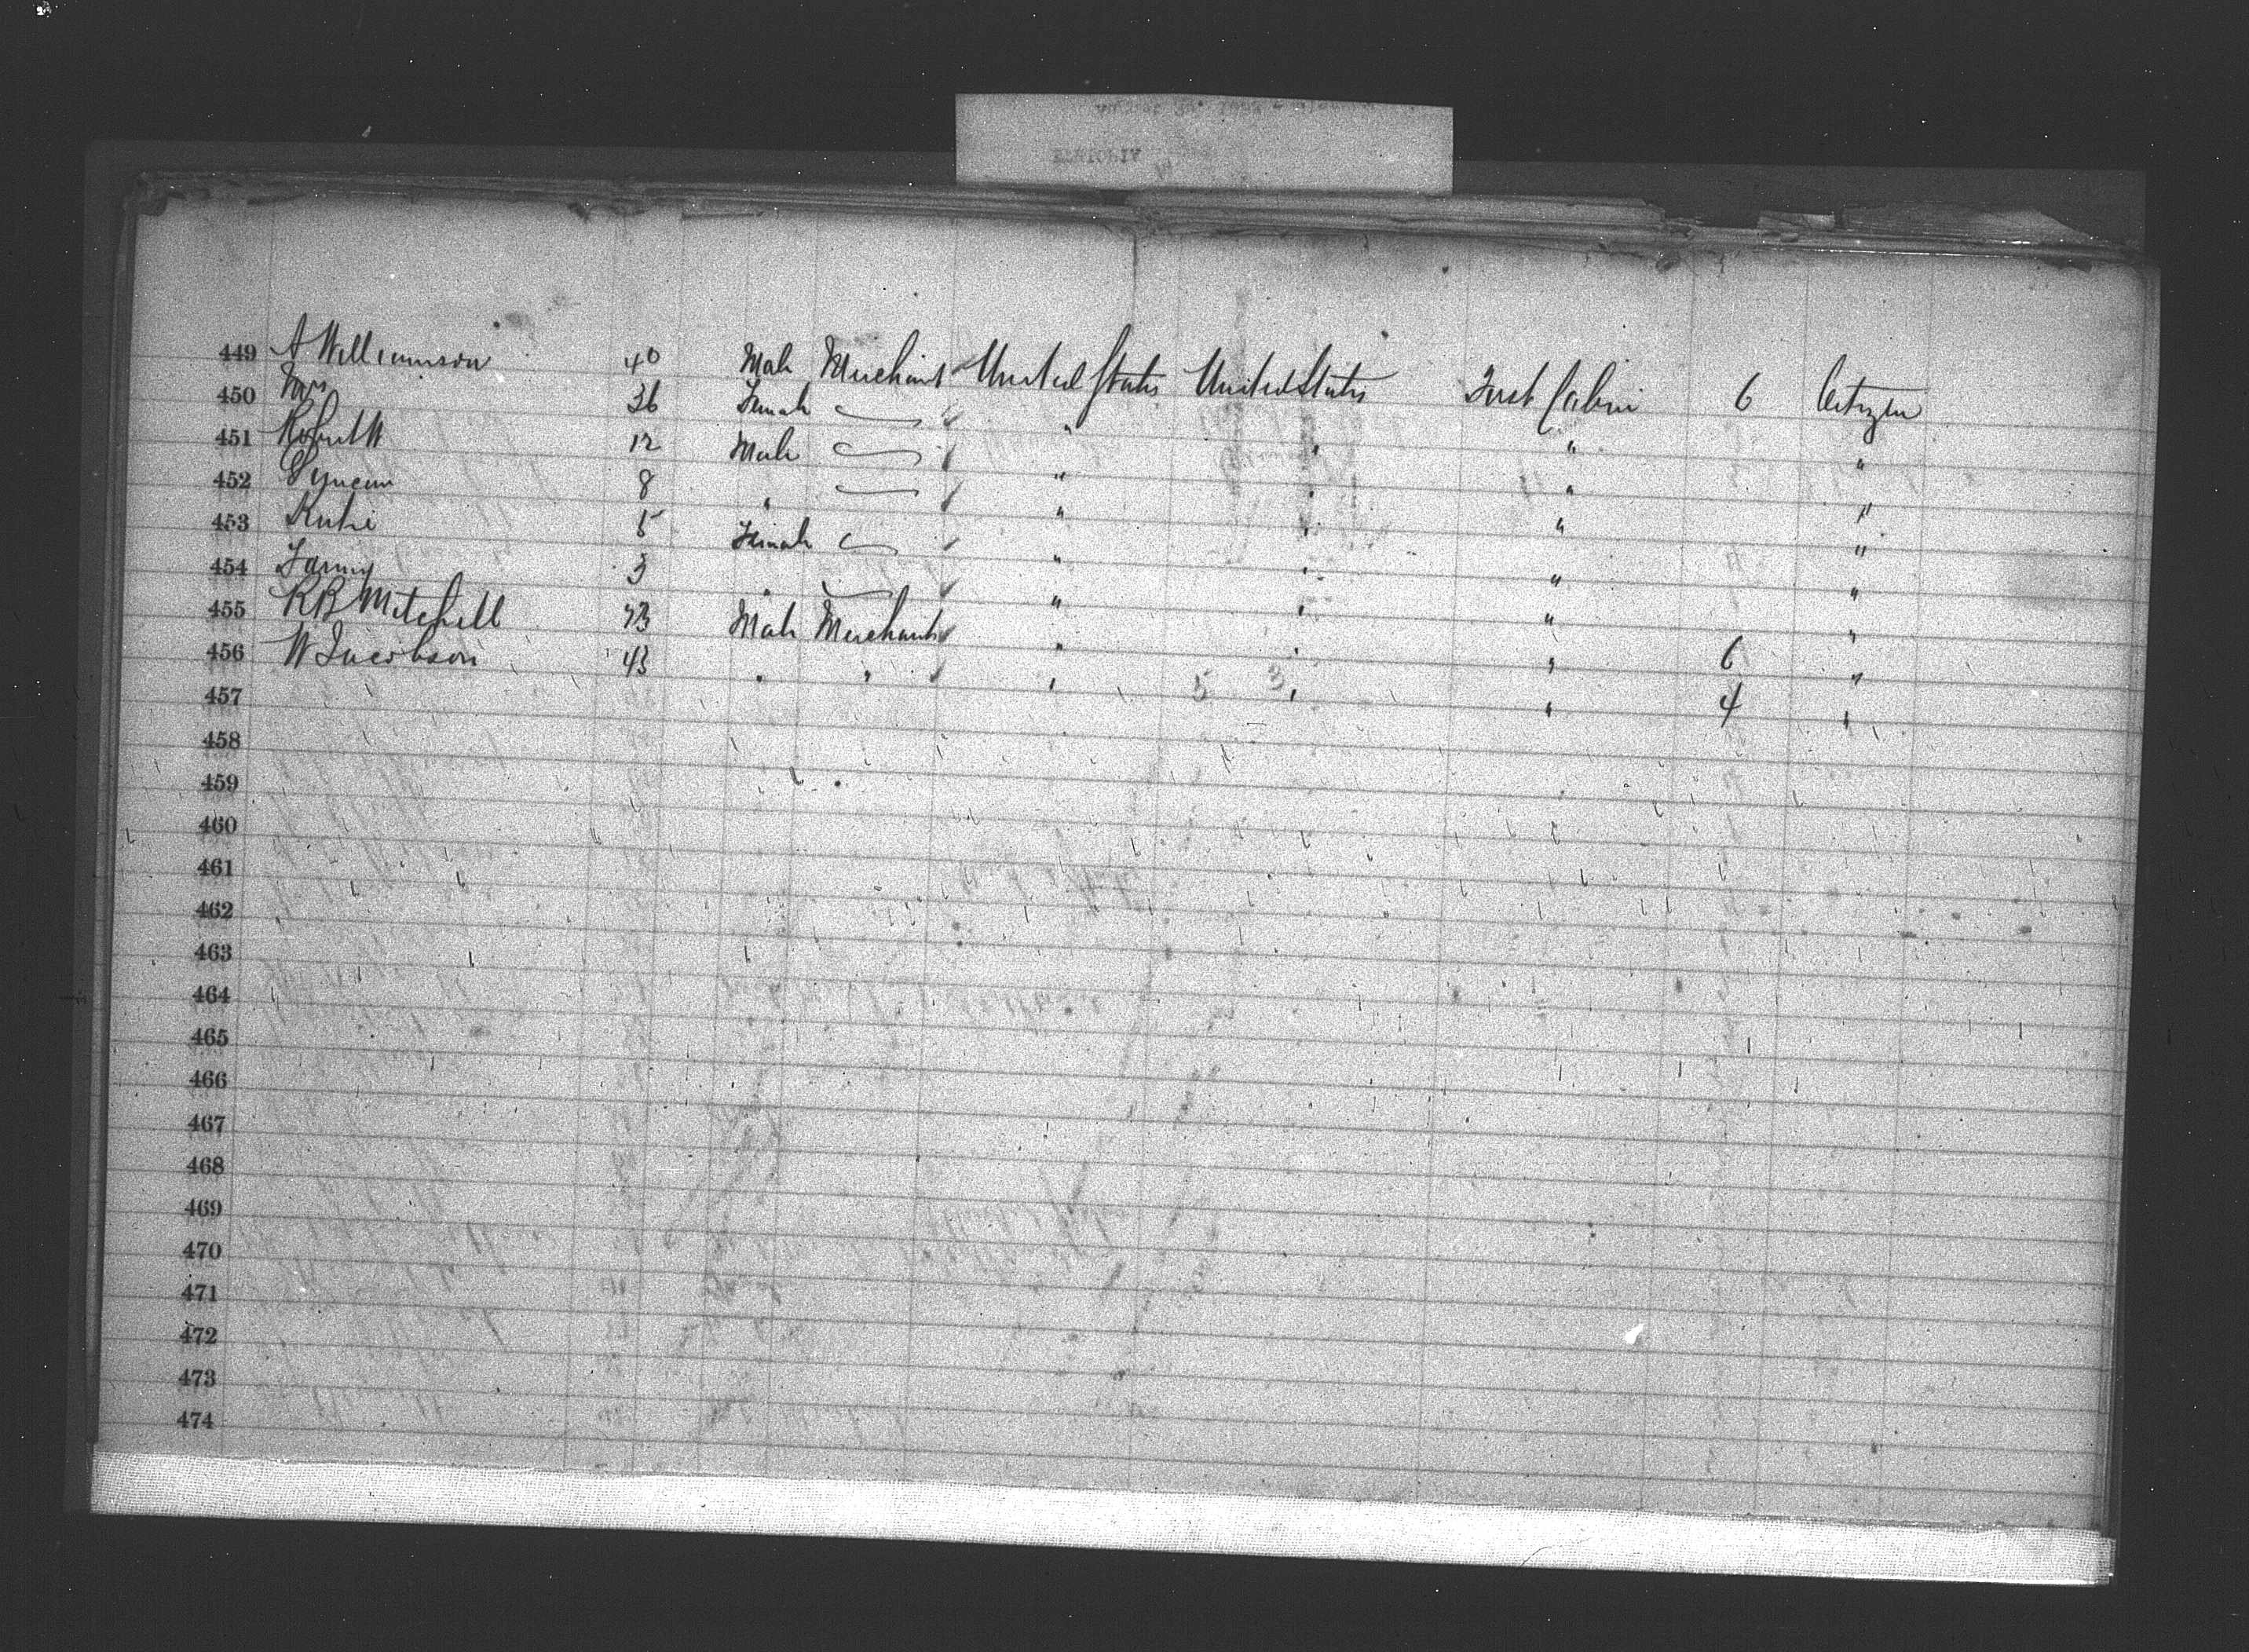 449 A Williamson 40 Male Merchant United States United States First Cabin 6 Citizen
450 Mrs 36 Female " " " "
451 Robert W 12 Male " " " "
452 8 " " " " "
453 5 Female " " " "
454 Fanny 3 " " " " "
455 RB Mitchell Male Merchant " " " 6 "
456 W Jacobson 43 " " " " " 4 "
457
458
459
460
461
462
463
464
465
466
467
468
469
470
471
472
473
474